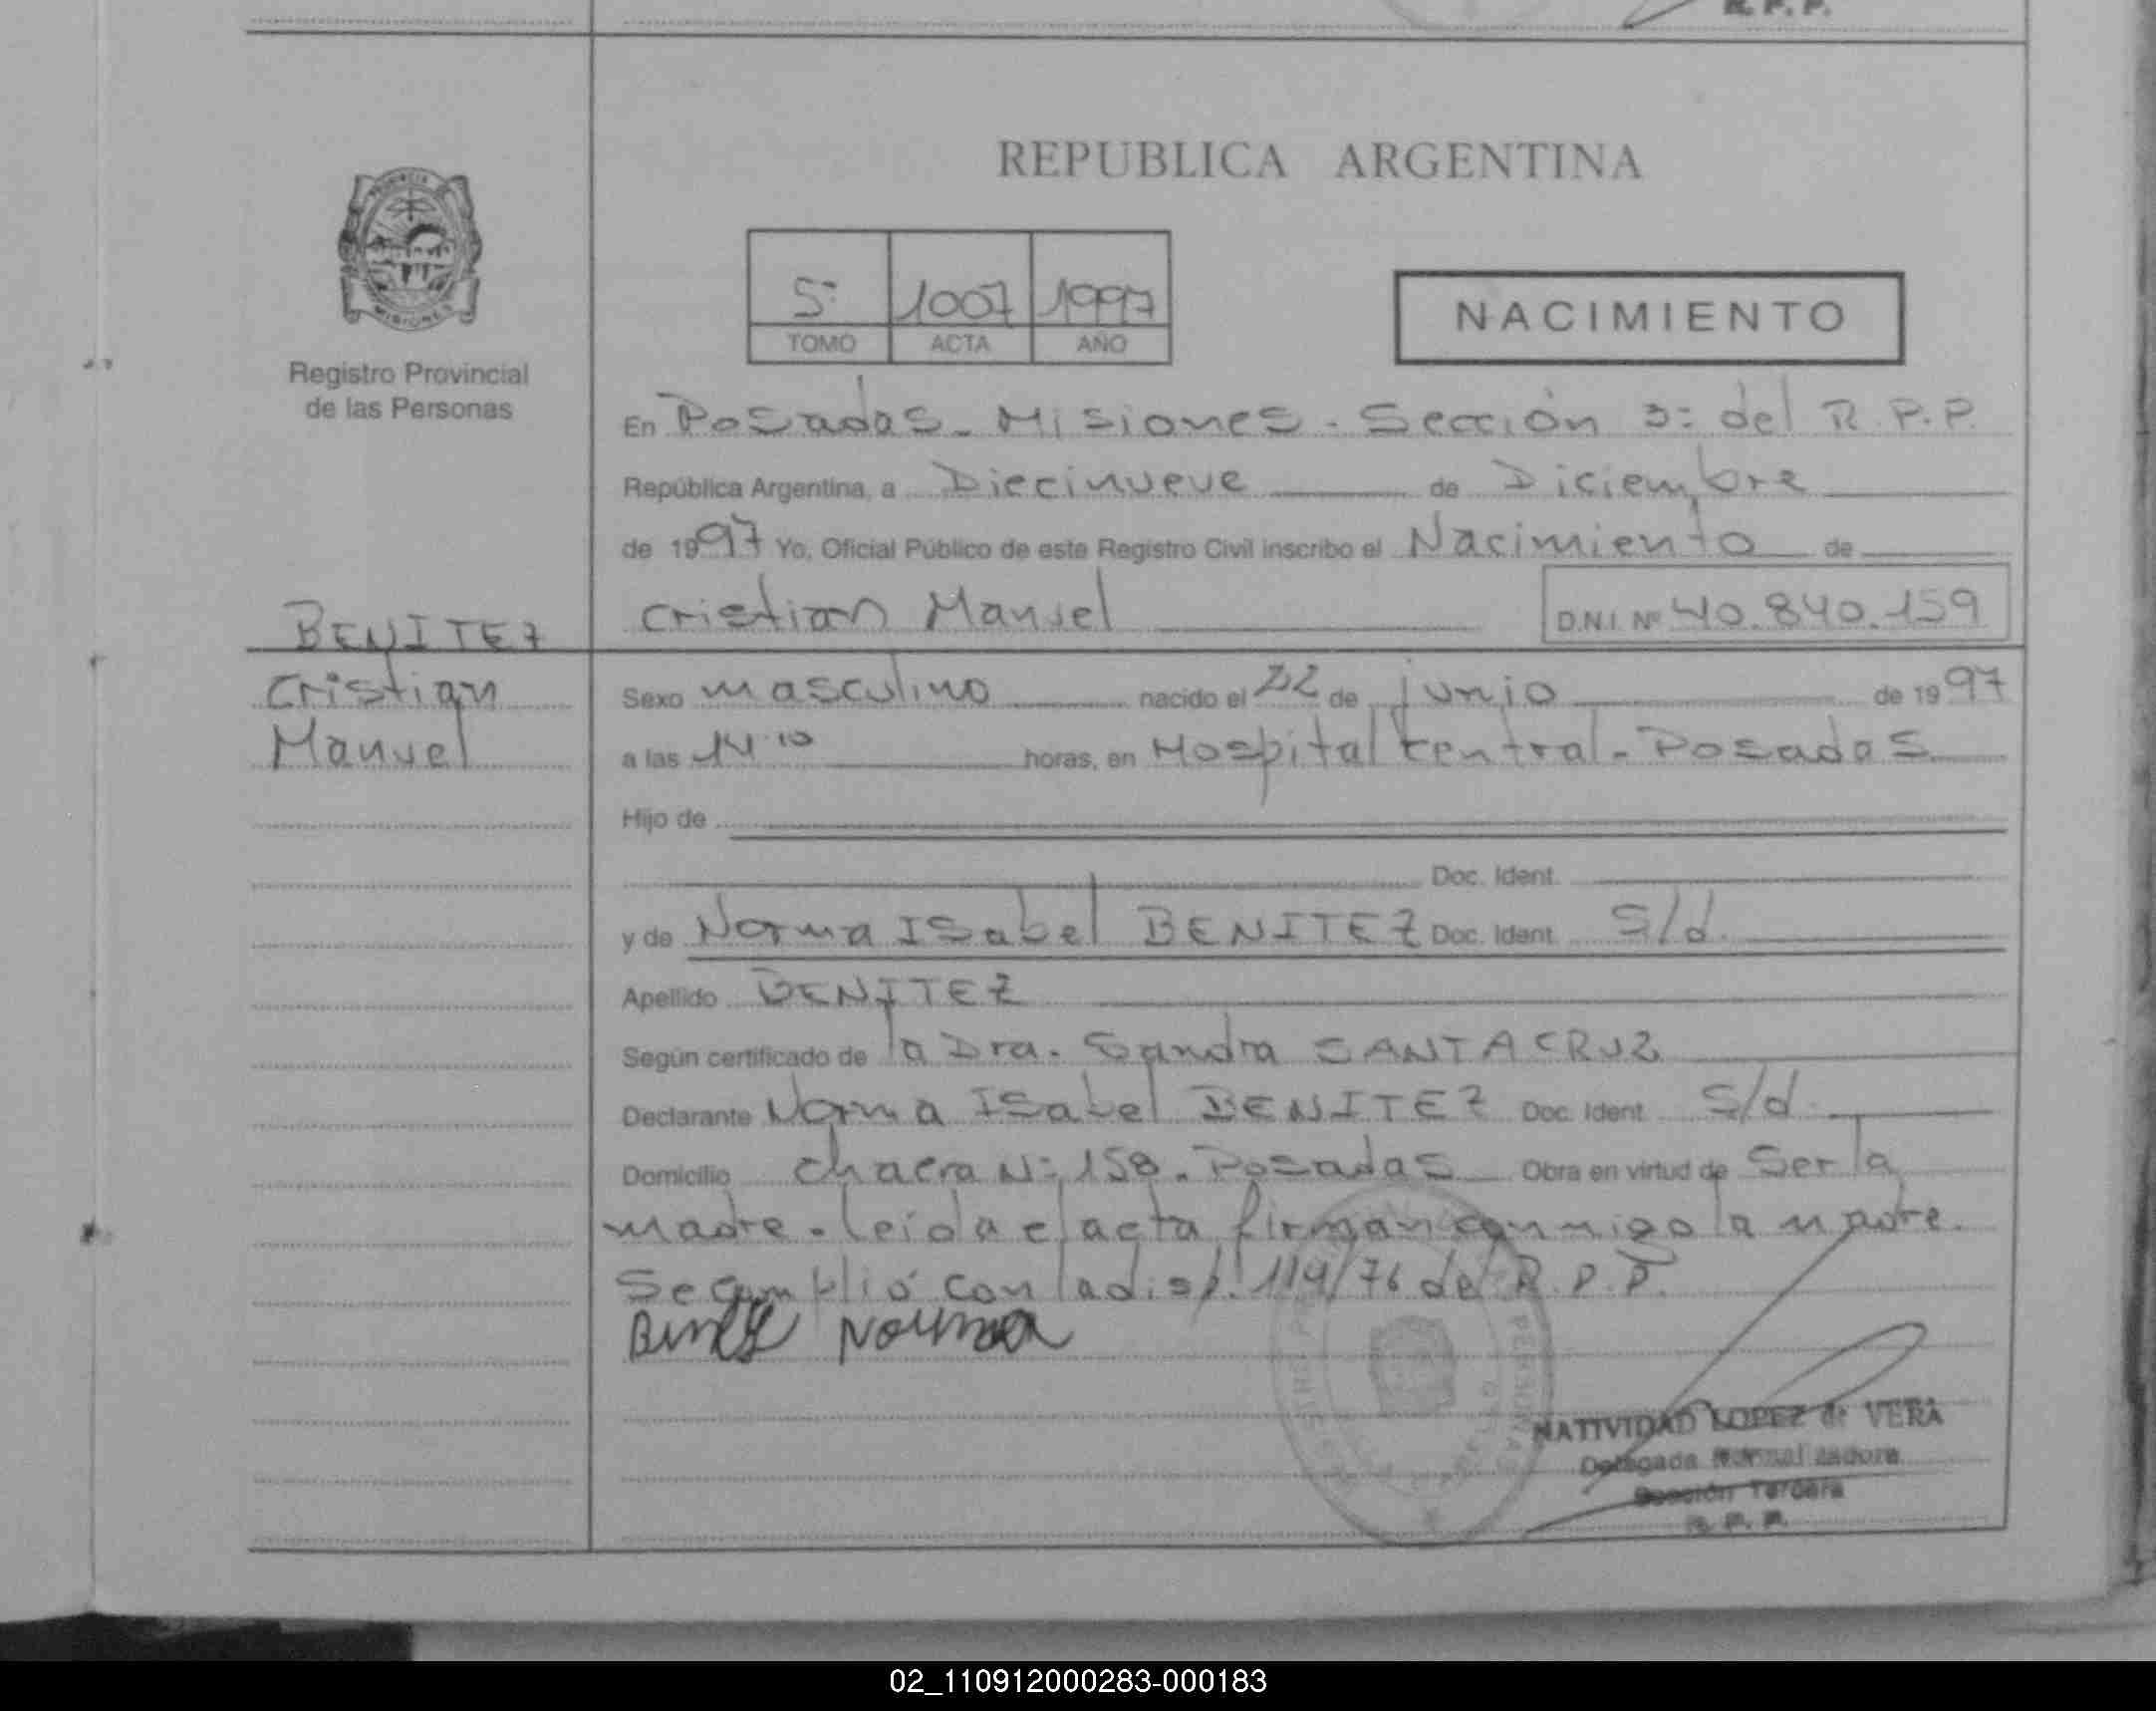 R. P. P.
REPUBLICA ARGENTINA
PROVINCIA DE
MISIONES
Registro Provincial
de las Personas
5º 1007 1997
TOMO ACTA AÑO
NACIMIENTO
En Posadas - Misiones - Sección 3º del R.P.P.
República Argentina, a Diecinueve de Diciembre
de 1997 Yo, Oficial Público de este Registro Civil inscribo el Nacimiento de
Cristian Manuel D.N.I. Nº 40.840.159
BENITEZ
Cristian
Manuel
Sexo masculino nacido el 22 de junio de 1997
a las 14.10 horas, en Hospital Central - Posadas
Hijo de
Doc. Ident.
y de Norma Isabel BENITEZ Doc. Ident. S/d.
Apellido BENITEZ
Según certificado de la Dra. Sandra SANTACRUZ
Declarante Norma Isabel BENITEZ Doc. Ident. S/d.
Domicilio Chacra Nº 158 - Posadas Obra en virtud de Ser la
madre - leida el acta firman conmigo la madre.
Se cumplió con la disp. 114/76 del R.P.P.
Norma
NATIVIDAD LOPEZ de VERA
Delegada Normalizadora
Sección Tercera
R. P. P.
02_110912000283-000183